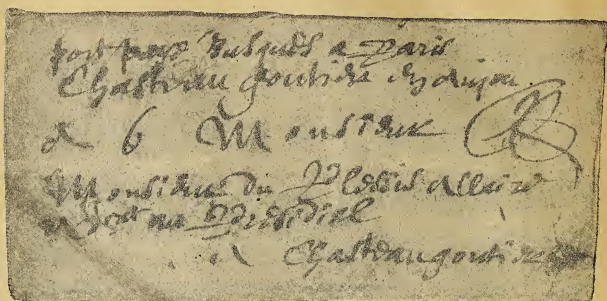 port paye Jusques a Paris
Chasteau gontier en anjou
A 6 Monsieur
Monsieur du Plessis
au Presidial
A Chasteaugontier